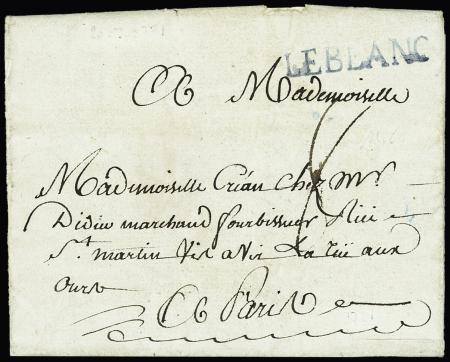 LEBLANC
A Mademoiselle
Mademoiselle Créan Chez Mr
Didier marchand fourbisseur Rüe
St martin Vis a Vis La rüe aux
ours
A Paris